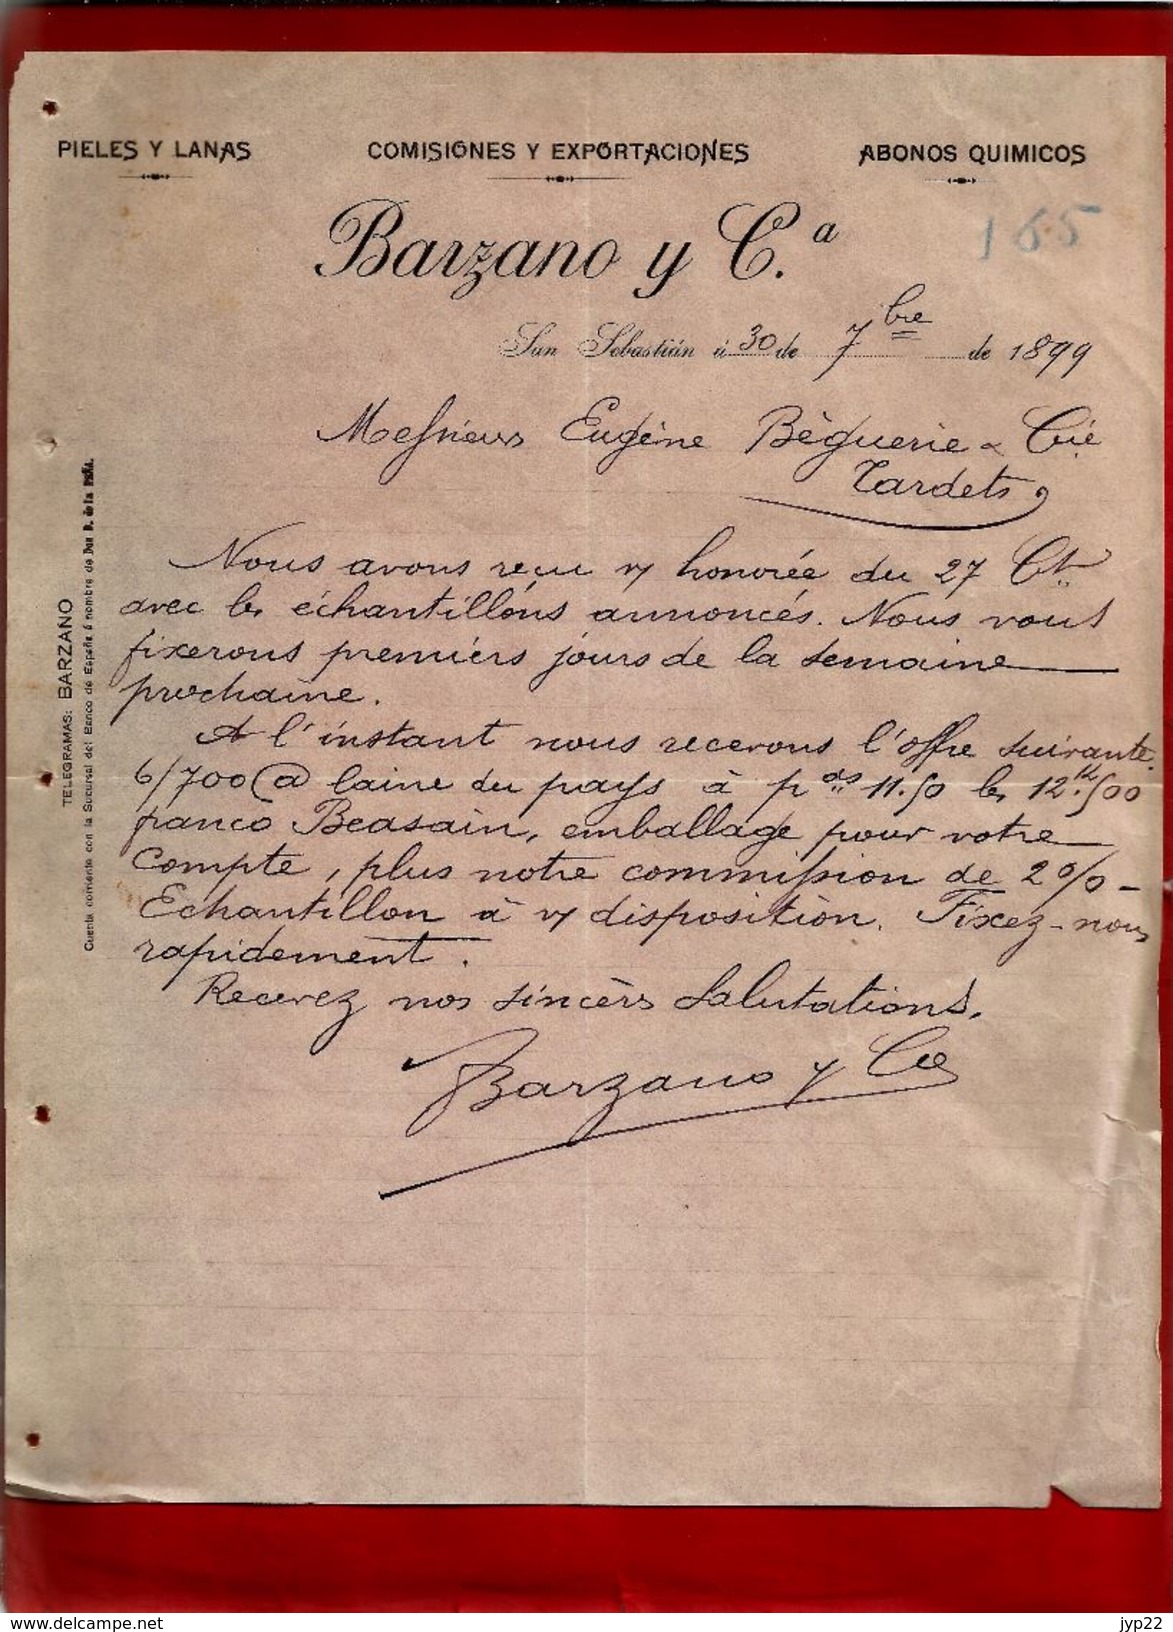 PIELES Y LANAS COMISIONES Y EXPORTACIONES ABONOS QUIMICOS
Barzano y C.ª
165
San Sebastián á 30 de 7bre de 1899
Messieurs Eugène Bèguerie & Cie
Tardets
Nous avons reçu v/ honorée du 27 Ct
avec les échantillons annoncés. Nous vous
fixerons premiers jours de la semaine
prochaine.
A l'instant nous recevons l'offre suivante.
6/700 @ laine du pays à pdas 11.50 les 12.k500
franco Beasain, emballage pour votre
Compte, plus notre commission de 2%-
Echantillon à v/ disposition. Fixez-nous
rapidement.
Recevez nos sincères Salutations.
Barzano y Cie
TELEGRAMAS: BARZANO
Cuenta corriente con la Sucursal del Banco de España á nombre de Don B. de la
delcampe.net
jyp22